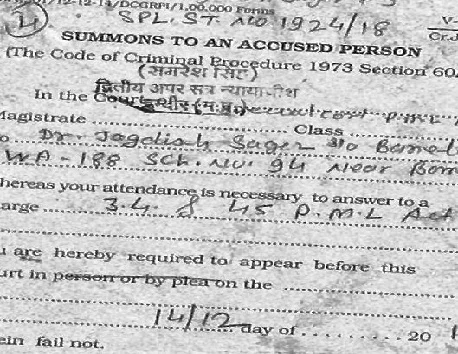 12-12-14/DCGRPI/1,00,000 Forms
2 SPL. ST. No 1924/18 V-
Cr.J
SUMMONS TO AN ACCUSED PERSON
(The Code of Criminal Procedure 1973 Section 60,
(समरेश सिंह)
द्वितीय अपर सत्र न्यायाधीश
In the Court इन्दौर (म.प्र.)
Magistrate Class
To Dr. Jagdish Sagar S/o
WA-188 Sch. No. 94 Near Bom
hereas your attendance is necessary to answer to a
arge 3.4. & 45 P.M.L Act
u are hereby required to appear before this
urt in person or by plea on the
14/12 day of 20 1
ein fail not.